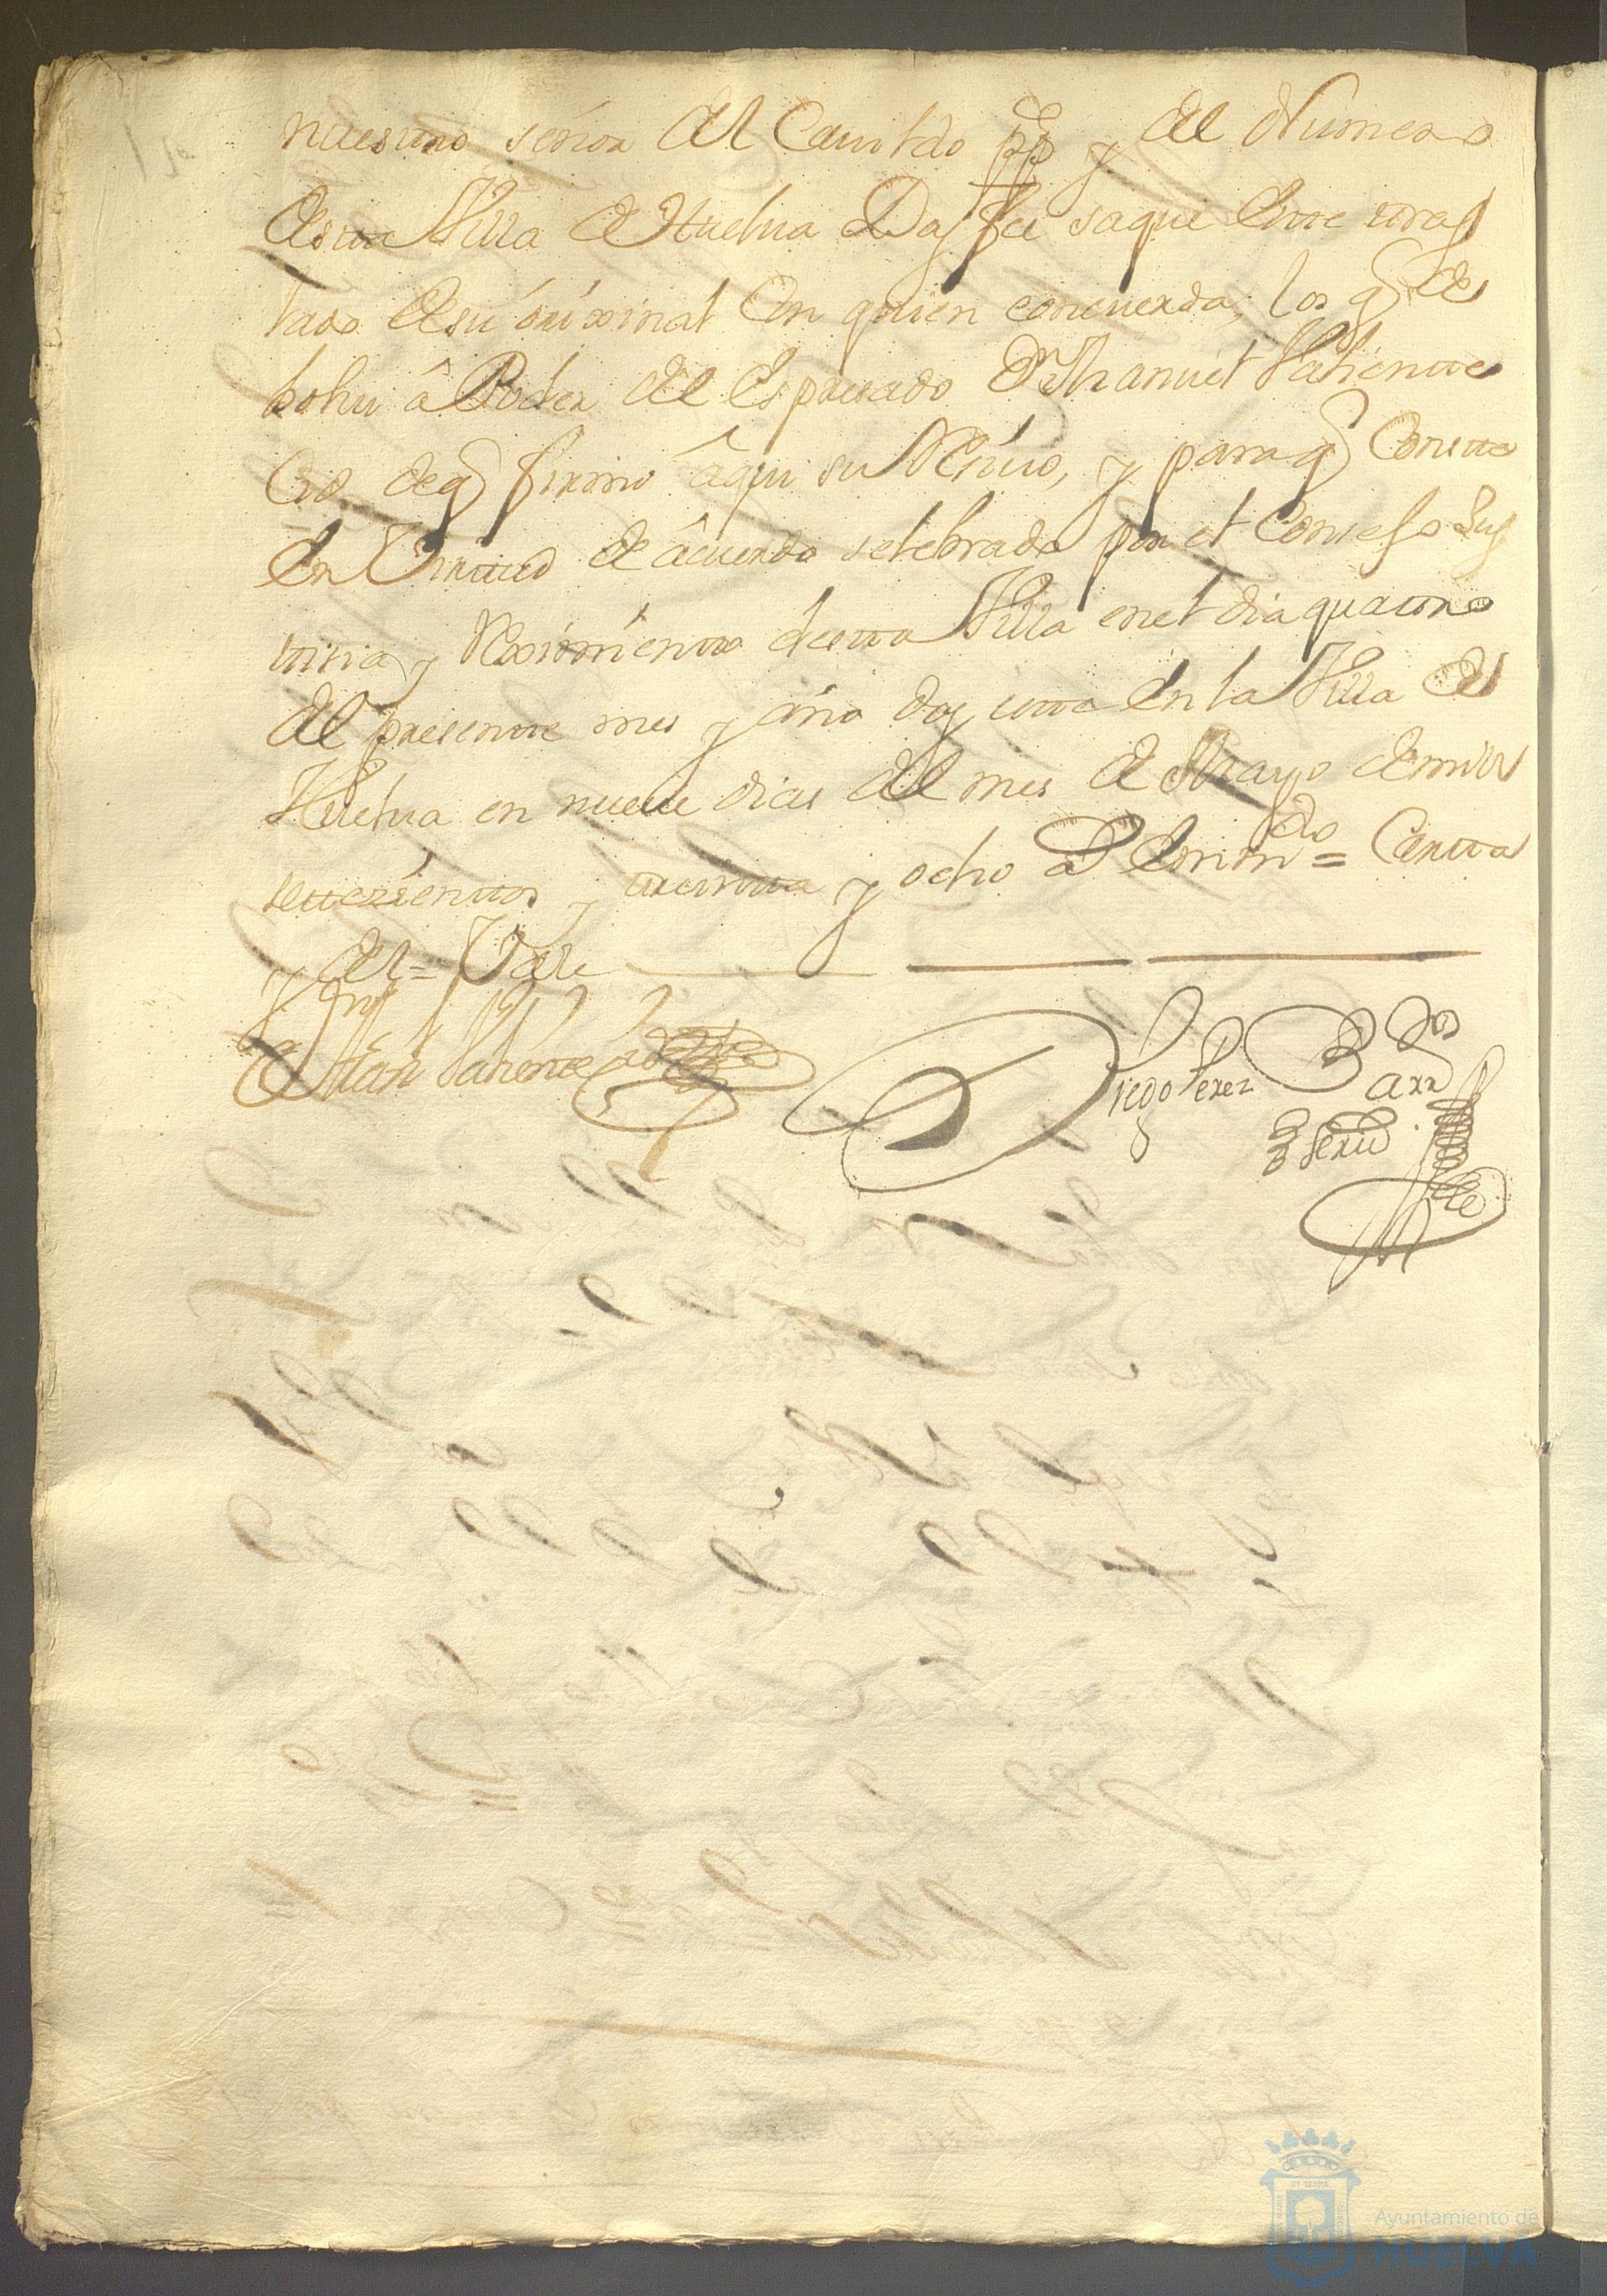 nuestro señor del Cauildo pp.co y del Numero
desta Villa de Huelua Doy fee saque este tras
lado de su orixinal con quien concuerda, los q̃ de
bolui â Poder del espresado Dn Manuel Valiente
de q̃ firmo âqui su Reciuo, y para q̃ Conste
en Virtud de âcuerdo selebrado por el Consejo Jus
ticia y Reximiento desta Villa en el dia quatro
del presente mes y año doy este en la Villa de
Huelua en nueue dias del mes de Mayo de mill
settesientos y treintta y ocho a.s enm.do = Cartta
y del = Vale
Dn Man Valiente
Diego Perez Barr.dos
Scriu.
Ayuntamiento de
HUELVA